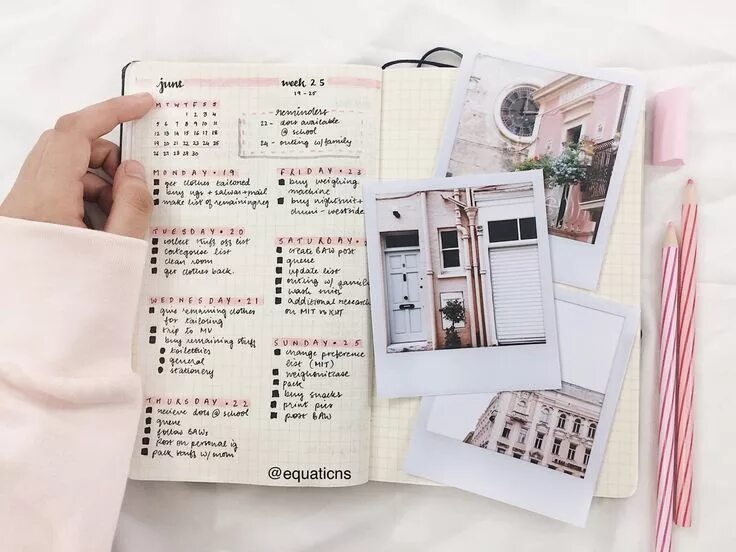 june
M T W T F S S
1 2 3 4
5 6 7 8 9 10 11
12 13 14 15 16 17 18
19 20 21 22 23 24 25
26 27 28 29 30
week 25
19 - 25
reminders
22 - docs available
@ school
24 - outing w/family
MONDAY 19
get clothes tailored
buy + salwar + mail
make list of remaining req
TUESDAY 20
collect stuff off list
categorise list
clean room
get clothes back
WEDNESDAY 21
give remaining clothes
for tailoring
trip to MV
buy remaining stuff
toiletries
general
stationery
THURSDAY 22
recieve docs @ school
queue
follow BAWs
post on personal ig
pack stuff w/mom
FRIDAY 23
buy weighing
machine
buy nightsuit +
- westside
SATURDAY
create BAW post
queue
update list
outing w/ family
wash
additional research
on MIT vs
SUNDAY 25
change preference
list (MIT)
weigh suitcase
pack
buy snacks
print pics
post BAW
@equaticns